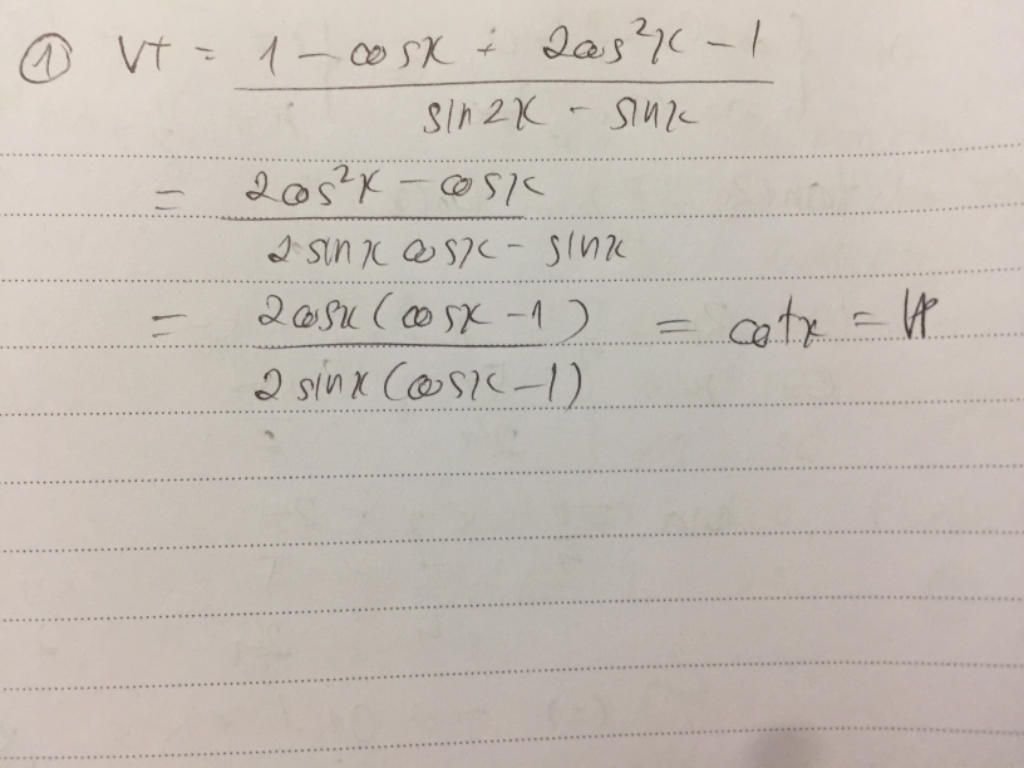 ① VT = 1 - cosx + 2cos²x - 1
sin2x - sinx
= 2cos²x - cosx
2sinx cosx - sinx
= 2cosx(cosx - 1) = cotx = VP
2sinx(cosx - 1)